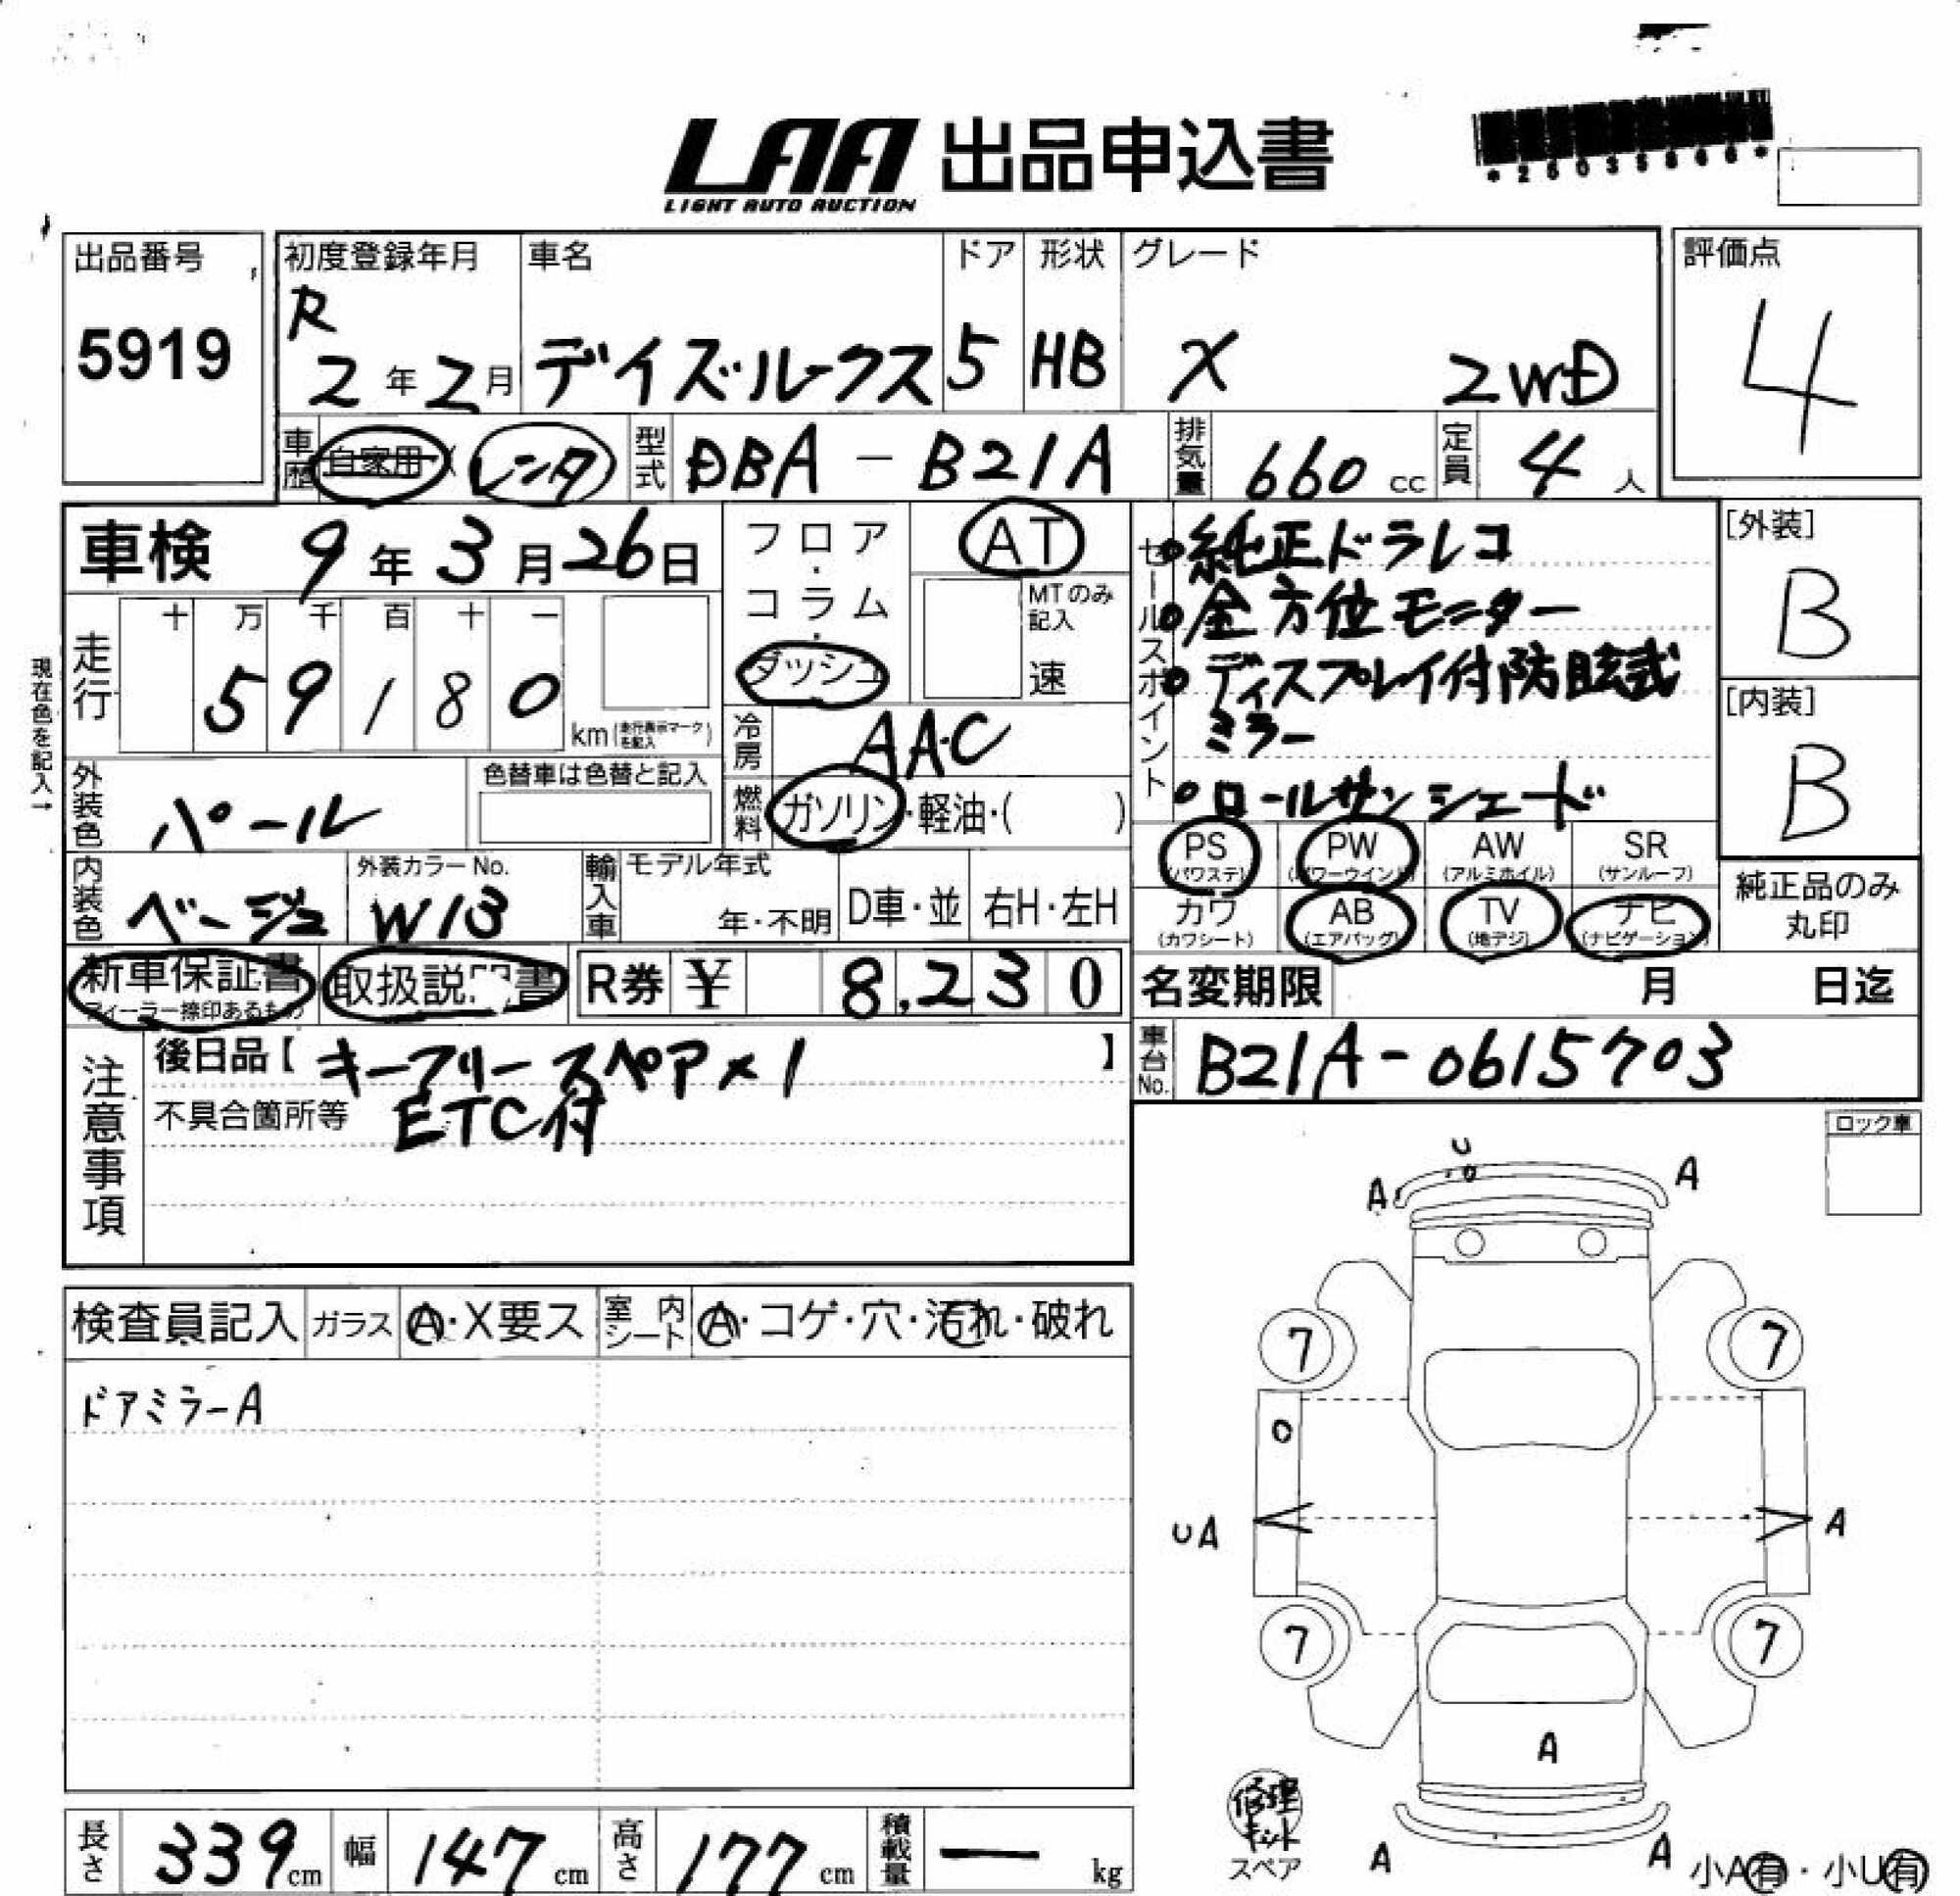 LAA 出品申込書
LIGHT AUTO AUCTION
*25035846*
出品番号
5919
初度登録年月
R
2年2月
車名
デイズ・ルークス
ドア
5
形状
HB
グレード
X 2WD
評価点
4
車歴 自家用 ( レンタ
型式 DBA - B21A
排気量 660 cc
定員 4 人
車検 9年3月26日
フロア・コラム・ダッシュ
AT
MTのみ記入
速
セールスポイント
・純正ドラレコ
・全方位モニター
・ディスプレイ付防眩式
ミラー
・ロールサンシェード
[外装]
B
[内装]
B
現在色を記入→
走行
十 万 千 百 十 一
5 9 1 8 0
km (走行表示マークを記入)
冷房 AAC
外装色 パール
色替車は色替と記入
燃料 ガソリン・軽油・( )
PS (パワステ)
PW (パワーウインド)
AW (アルミホイル)
SR (サンルーフ)
カワ (カワシート)
AB (エアバッグ)
TV (地デジ)
ナビ (ナビゲーション)
純正品のみ
丸印
内装色 ベージュ
外装カラーNo.
W13
輸入車 モデル年式
年・不明
D車・並 右H・左H
新車保証書
ディーラー捺印あるもの
取扱説明書
R券 ¥ 8,230
名変期限 月 日迄
注意事項
後日品【 キーフリースペア×1 】
不具合箇所等 ETC付
車台No. B21A-0615703
ロック車
検査員記入 ガラス A・X要ス
室内シート A・コゲ・穴・汚れ・破れ
ドアミラーA
U
A A
7 7
UA A
7 7
A
A A
修理
キット
スペア
小A有・小U有
長さ 339 cm
幅 147 cm
高さ 177 cm
積載量 ー kg